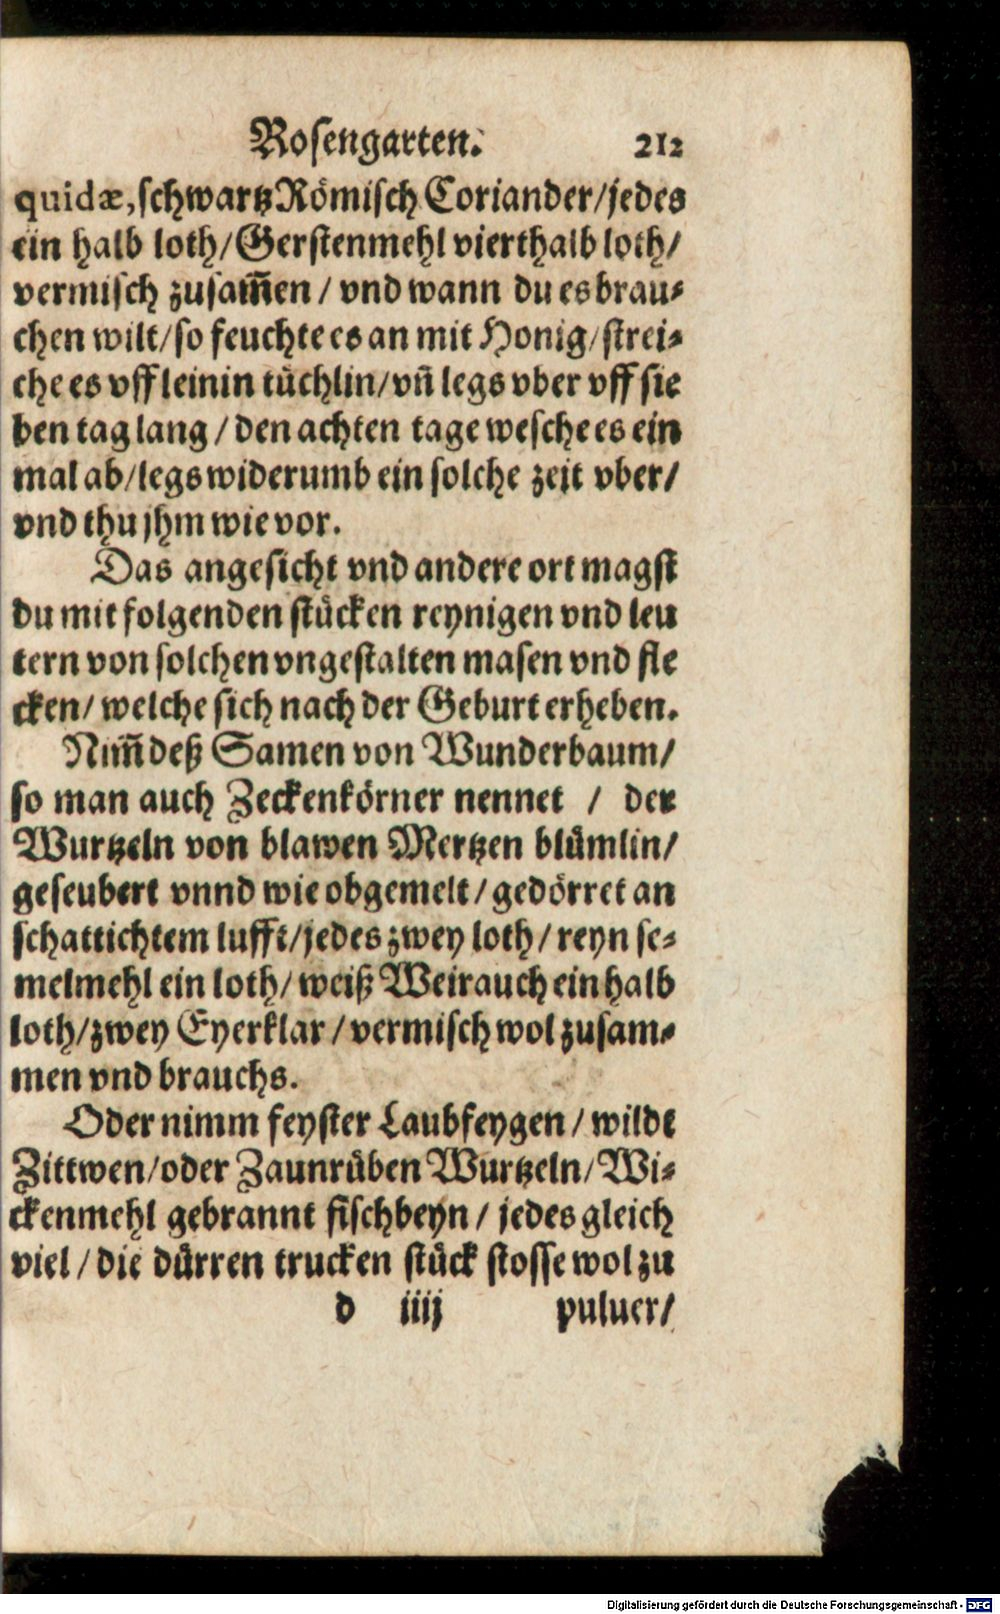 Rosengarten. 212
quidæ, schwartz Römisch Coriander/jedes
ein halb loth/Gerstenmehl vierthalb loth/
vermisch zusam̃en/ vnd wann du es brau⸗
chen wilt/so feuchte es an mit Honig/strei⸗
che es vff leinin tuͤchlin/vñ legs vber vff sie
ben tag lang/den achten tage wesche es ein
mal ab/legs widerumb ein solche zeit vber/
vnd thu jhm wie vor.
Das angesicht vnd andere ort magst
du mit folgenden stuͤcken reynigen vnd leu
tern von solchen vngestalten masen vnd fle
cken/ welche sich nach der Geburt erheben.
Nim̃ deß Samen von Wunderbaum/
so man auch Zeckenkörner nennet / der
Wurtzeln von blawen Mertzen bluͤmlin/
geseubert vnnd wie obgemelt/gedörret an
schattichtem lufft/jedes zwey loth/reyn se⸗
melmehl ein loth/weiß Weirauch ein halb
loth/zwey Eyerklar/vermisch wol zusam⸗
men vnd brauchs.
Oder nimm feyster Laubfeygen/wilde
Zittwen/oder Zaunruͤben Wurtzeln/Wi⸗
ckenmehl gebrannt fischbeyn/ jedes gleich
viel/die duͤrren trucken stuͤck stosse wol zu
d iiij puluer/
Digitalisierung gefördert durch die Deutsche Forschungsgemeinschaft - DFG